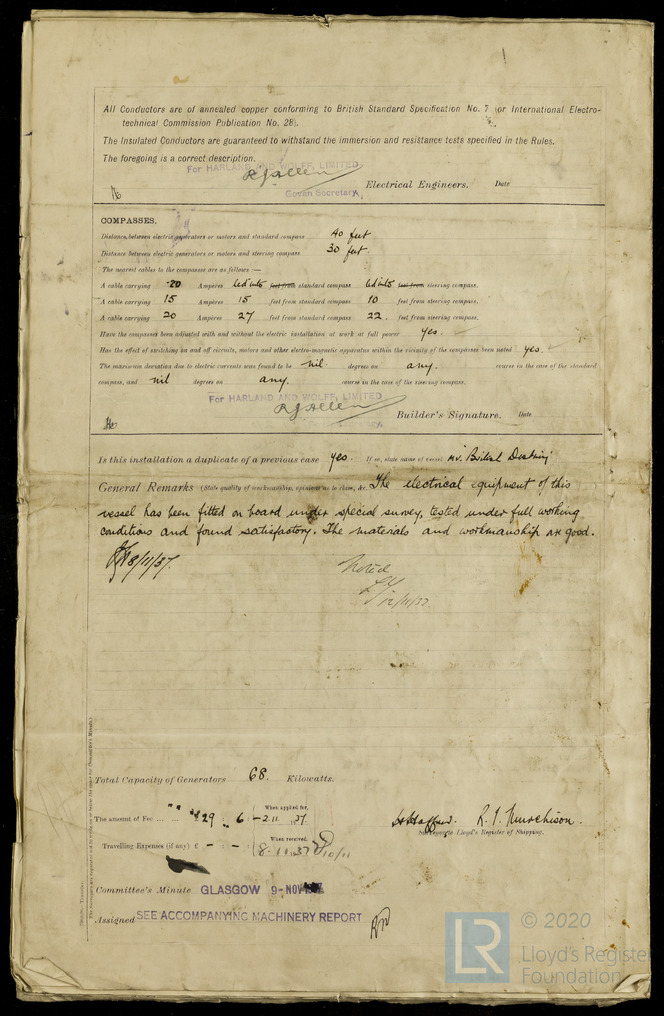 All Conductors are of annealed copper conforming to British Standard Specification No. 7 (or International Electro-
technical Commission Publication No. 28).
The Insulated Conductors are guaranteed to withstand the immersion and resistance tests specified in the Rules.
The foregoing is a correct description.
For HARLAND AND WOLFF, LIMITED
R J Allen
Govan Secretary. Electrical Engineers. Date
COMPASSES.
Distance between electric generators or motors and standard compass 40 feet
Distance between electric generators or motors and steering compass 30 feet.
The nearest cables to the compasses are as follows :—
A cable carrying 20 Ampères led into feet from standard compass led into feet from steering compass.
A cable carrying 15 Ampères 15 feet from standard compass 10 feet from steering compass.
A cable carrying 20 Ampères 27 feet from standard compass 22. feet from steering compass.
Have the compasses been adjusted with and without the electric installation at work at full power yes.
Has the effect of switching on and off circuits, motors and other electro-magnetic apparatus within the vicinity of the compasses been noted yes.
The maximum deviation due to electric currents was found to be nil. degrees on any. course in the case of the standard
compass, and nil degrees on any. course in the case of the steering compass.
For HARLAND AND WOLFF, LIMITED
R J Allen
Builder's Signature. Date
Is this installation a duplicate of a previous case yes. If so, state name of vessel m.v. British
General Remarks (State quality of workmanship, opinions as to class, &c. The electrical equipment of this
vessel has been fitted on board under special survey, tested under full working
conditions and found satisfactory. The materials and workmanship are good.
8/11/37.
Noted
12/11/37
Total Capacity of Generators 68. Kilowatts.
The amount of Fee ... ... £ 29 : 6 : When applied for, 2.11.37.
Travelling Expenses (if any) £ - : - : When received, 8.11.37 10/11
R. J. Murchison.
Surveyors to Lloyd's Register of Shipping.
Committee's Minute GLASGOW 9-NOV 1937
Assigned SEE ACCOMPANYING MACHINERY REPORT
LR
© 2020
Lloyd's Register
Foundation